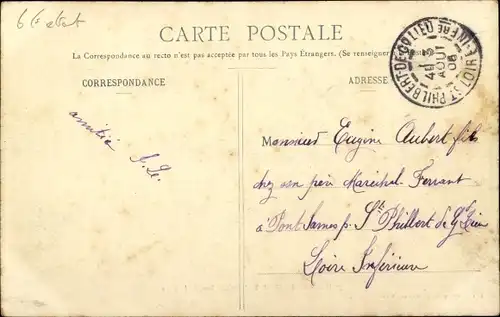 6 Ce
CARTE POSTALE
La Correspondance au recto n'est pas acceptée par tous les Pays Étrangers. (Se renseigner
CORRESPONDANCE
ADRESSE
ST PHILBERT-DE-GD LIEU LOIRE-INFRE
4E 13
AOUT
06
amitié
Monsieur Eugène Aubert fils
chez son père Maréchal-Ferrant
à Pont James p. St Philbert de Gd Lieu
Loire Inférieure